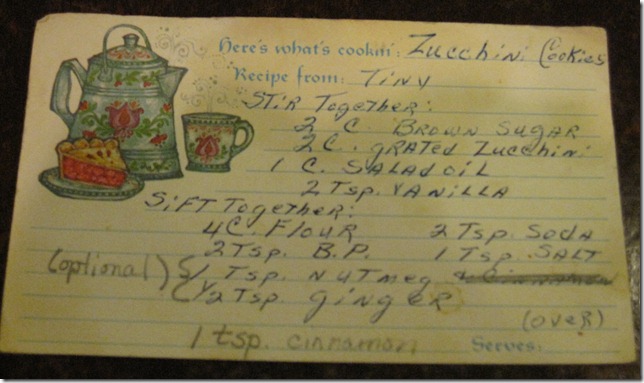 Here's what's cookin': Zucchini Cookies
Recipe from: Tiny
Stir Together:
2 C. Brown Sugar
2 C. grated Zucchini
1 C. Salad oil
2 Tsp. Vanilla
Sift Together:
4 C. Flour 2 Tsp. Soda
2 Tsp. B.P. 1 Tsp. Salt
(optional) { 1 Tsp. Nutmeg & Cinnamon
1/2 Tsp. ginger
(over)
1 tsp. cinnamon Serves: